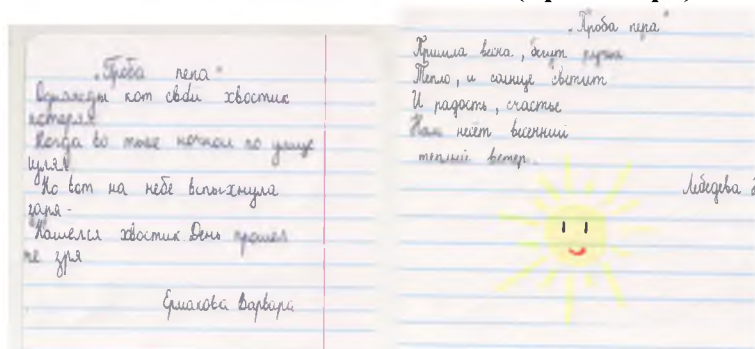 „Проба пера"
Однажды кот свой хвостик
потерял
Когда во тьме ночной по улице
гулял.
Но вот на небе вспыхнула
заря -
Нашёлся хвостик День прошёл
не зря
Ермакова Варвара
„Проба пера"
Пришла весна, бегут ручьи
Тепло, и солнце светит
И радость, счастье
Нам несёт весенний
теплый ветер.
Лебедева